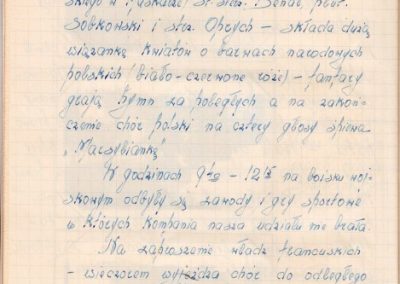 skiego w
Sobkowski i strz. Oprych – składa dużą
wiązankę kwiatów o barwach narodowych
polskich (biało-czerwone róże) – fanfary
grają hymn za poległych a na zakoń-
czenie chór polski na cztery głosy śpiewa
„Marsyliankę”
W godzinach 9 – 12 na boisku woj-
skowym odbyły się zawody i gry sportowe
w których kompania nasza udziału nie brała.
Na zaproszenie władz francuskich
– wieczorem wyjeżdża chór do odległego